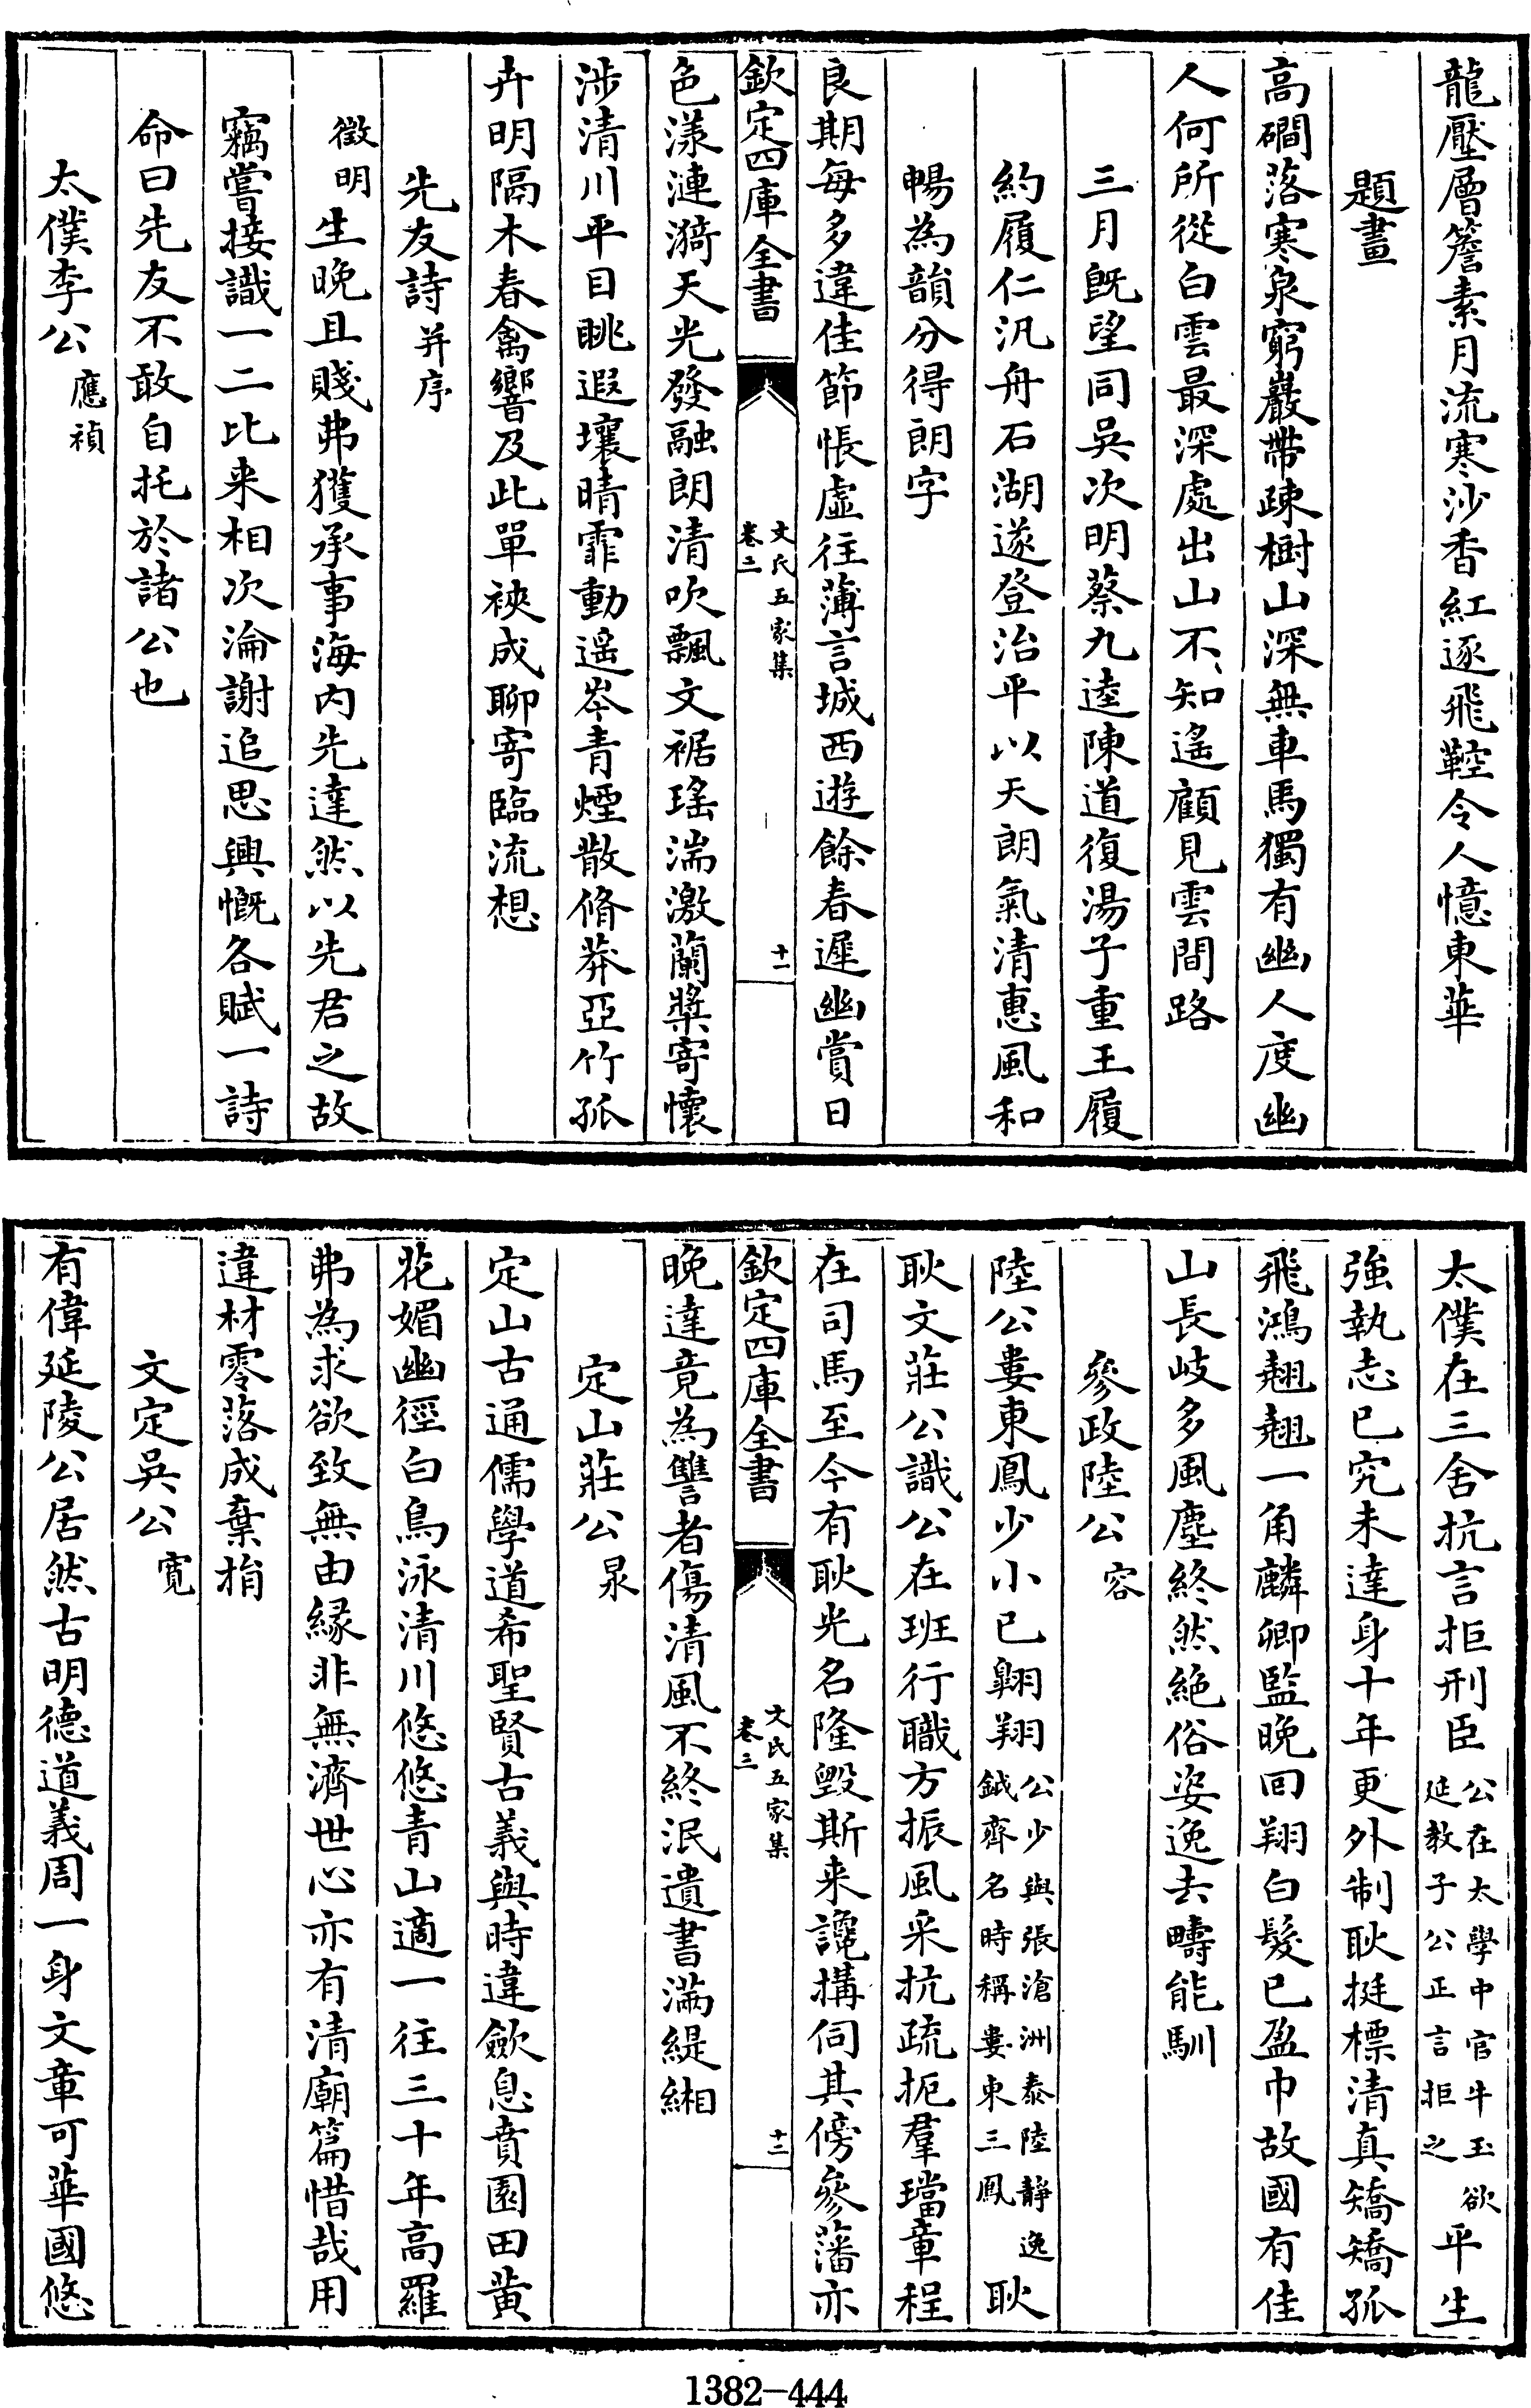 龍壓層簷素月流寒沙香紅逐飛鞚令人憶東華
題畫
高磵落寒泉窮巖帶疎樹山深無車馬獨有幽人度幽
人何所從白雲最深處出山不知遙顧見雲間路
三月旣望同吳次明蔡九逵陳道復湯子重王履
約履仁汎舟石湖遂登治平以天朗氣清惠風和
暢為韻分得朗字
良期每多違佳節悵虛往薄言城西遊餘春遲幽賞日
欽定四庫全書
文氏五家集
卷三
十一
色漾漣漪天光發融朗清吹飄文裾瑤湍激蘭槳寄懷
涉清川平目眺遐壤晴霏動遥岑青煙散脩莽亞竹孤
卉明隔木春禽響及此單裌成聊寄臨流想
先友詩并序
徵明生晚且賤弗獲承事海内先達然以先君之故
竊嘗接識一二比来相次淪謝追思興慨各賦一詩
命曰先友不敢自托於諸公也
太僕李公應禎
太僕在三舍抗言拒刑臣公在太學中官牛玉欲延教子公正言拒之平生
強執志已究未達身十年更外制耿挺標清真矯矯孤
飛鴻翹翹一角麟卿監晚回翔白髮已盈巾故國有佳
山長岐多風塵終然絶俗姿逸去疇能馴
參政陸公容
陸公婁東鳳少小已翺翔公少與張滄洲泰陸靜逸鉞齊名時稱婁東三鳳耿
耿文莊公識公在班行職方振風采抗疏扼羣璫章程
在司馬至今有耿光名隆毀斯来讒搆伺其傍參藩亦
欽定四庫全書
文氏五家集
卷三
十二
晩達竟為讐者傷清風不終泯遺書滿緹緗
定山莊公㫤
定山古通儒學道希聖賢古義與時違歛息賁園田黄
花媚幽徑白鳥泳清川悠悠青山適一往三十年高羅
弗為求欲致無由緣非無濟世心亦有清廟篇惜哉用
違材零落成棄捐
文定吳公寛
有偉延陵公居然古明德道義周一身文章可華國悠
1382-444